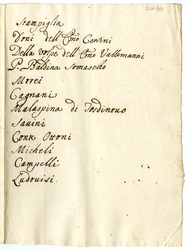 Stampiglia
Doni dell' Emo Corsini
Della Volpe dell' Emo Vallemanni
P. Baldini Somascho
Morei
Cagnani
Malaspina di
Savini
Conte Ottoni
Micheli
Campelli
Ludouisi